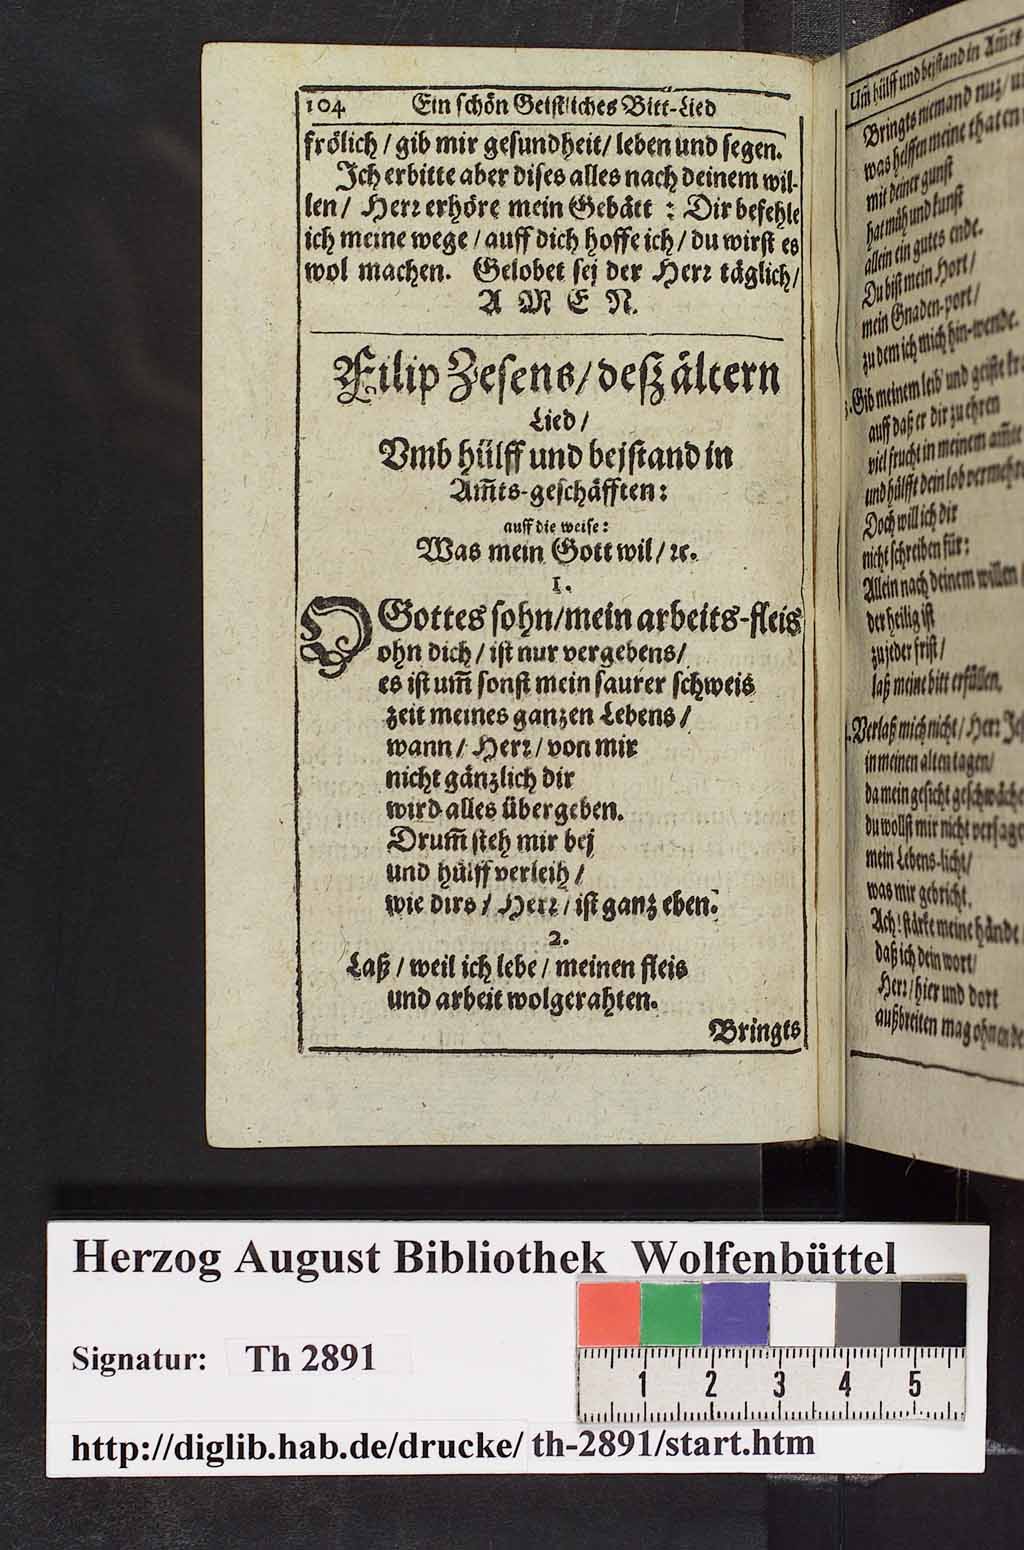 104 Ein schön Geistliches Bitt-Lied
frölich / gib mir gesundheit / leben und segen.
Ich erbitte aber dises alles nach deinem wil-
len / Herr erhöre mein Gebätt : Dir befehle
ich meine wege / auff dich hoffe ich / du wirst es
wol machen. Gelobet sej der Herr täglich /
A M E N.
Filip Zesens / desz ältern
Lied /
Vmb hülff und bejstand in
Am̃ts-geschäfften :
auff die weise :
Was mein Gott wil / ꝛc.
1.
O Gottes sohn / mein arbeits-fleis
ohn dich / ist nur vergebens /
es ist um̃ sonst mein saurer schweis
zeit meines ganzen Lebens /
wann / Herr / von mir
nicht gänzlich dir
wird alles übergeben.
Drum̃ steh mir bej
und hülff verleih /
wie dirs / Herr / ist ganz eben.
2.
Laß / weil ich lebe / meinen fleis
und arbeit wolgerahten.
Bringts
Um̃ hülff und bejstand in Am̃ts-
Bringts niemand nutz /
was helffen meine thaten
mit deiner gunst
hat müh und kunst
allein ein gutes ende.
Du bist mein Hort /
mein Gnaden-port /
zu dem ich mich hin-wende.
3. Gib meinem leib' und geiste
auff daß er dir zu ehren
viel frucht in meinem am̃te
und hülfft dein lob vermehr
Doch will ich dir
nicht schreiben für :
Allein nach deinem willen /
der heilig ist
zu jeder frist /
laß meine bitt erfüllen.
Verlaß mich nicht / Herr
in meinen alten tagen /
da mein gesicht geschwäche
du wollst mir nicht versage
mein Lebens-licht /
was mir gebricht.
Ach ! stärke meine hände
daß ich dein wort /
Herr / hier und dort
außbreiten mag ohn ende
Herzog August Bibliothek Wolfenbüttel
Signatur: Th 2891
1 2 3 4 5
http://diglib.hab.de/drucke/ th-2891/start.htm